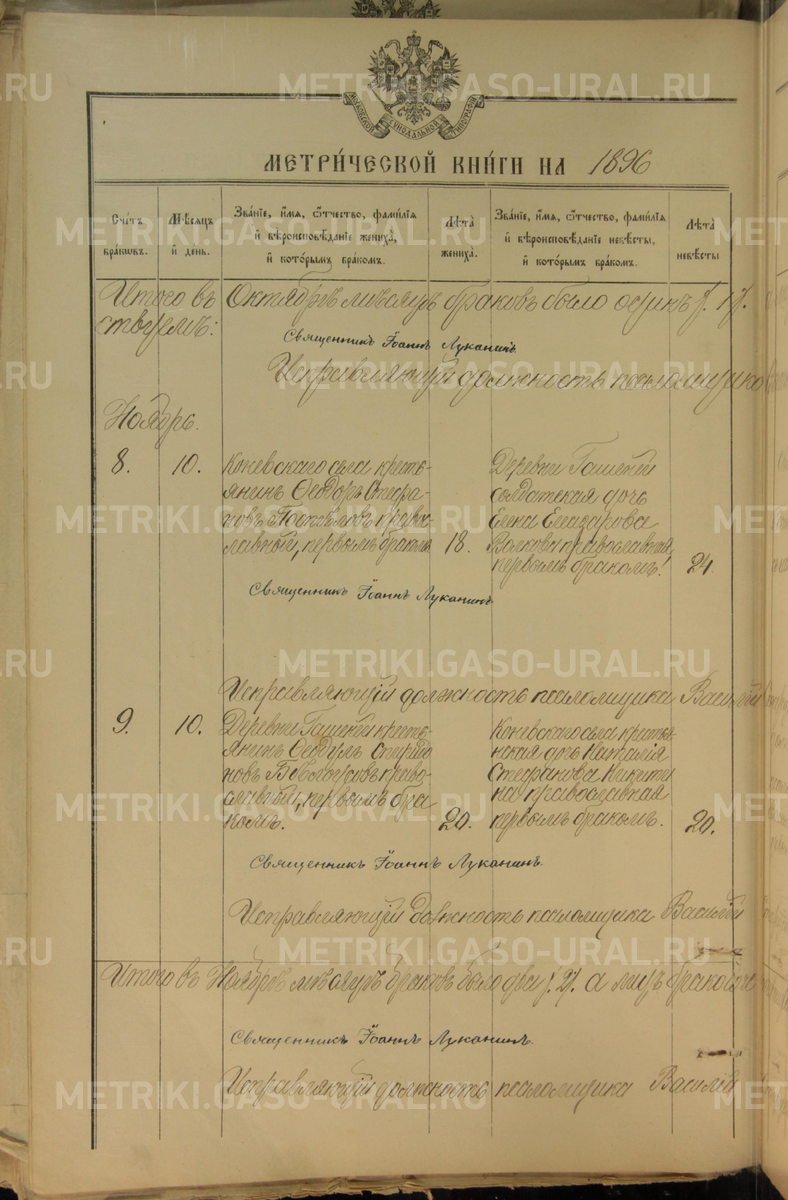 МОСКОВСКОЙ СѴНОДАЛЬНОЙ ТИПОГРАФІИ
МЕТРИ́ЧЕСКОЙ КНИ́ГИ НА 1896
Сче́тъ бра́ковъ.
Мѣ́сѧцъ и҆ де́нь.
Зва́нїе, и҆́мѧ, ѻ҆́тчество, фамилїѧ
и҆ вѣроисповѣданїе жениха̀,
и҆ кото́рымъ бра́комъ.
Лѣ́та жениха̀.
Зва́нїе, и҆́мѧ, ѻ҆́тчество, фамилїѧ
и҆ вѣроисповѣданїе невѣ́сты,
и҆ кото́рымъ бра́комъ.
Лѣ́та невѣ́сты
Итого въ Октябрѣ мѣсяцѣ браковъ было одинъ /. 1 /.
Священникъ Іоаннъ Луканинъ.
Исправляющій должность псаломщика
Ноябрь.
8.
10.
Коневскаго села кресть-
янинъ Ѳеодоръ Стефа-
новъ православный, первымъ бракомъ
18.
Деревни
солдатская дочь
Елена Елеазарова
Волкова православная,
первымъ бракомъ.
24.
Священникъ Іоаннъ Луканинъ.
Исправляющій должность псаломщика Василій
9.
10.
Деревни кресть-
янинъ Ѳеодулъ Спиридо
новъ право-
славный, первымъ бра
комъ.
20.
Коневскаго села кресть-
янская дочь Наталія
Стефанова Никити
на православная
первымъ бракомъ.
20.
Священникъ Іоаннъ Луканинъ.
Исправляющій должность псаломщика Василій
Итого въ Ноябрѣ мѣсяцѣ браковъ было два /. 2 /. а
Священникъ Іоаннъ Луканинъ.
Исправляющій должность псаломщика Василій
METRIKI.GASO-URAL.RU